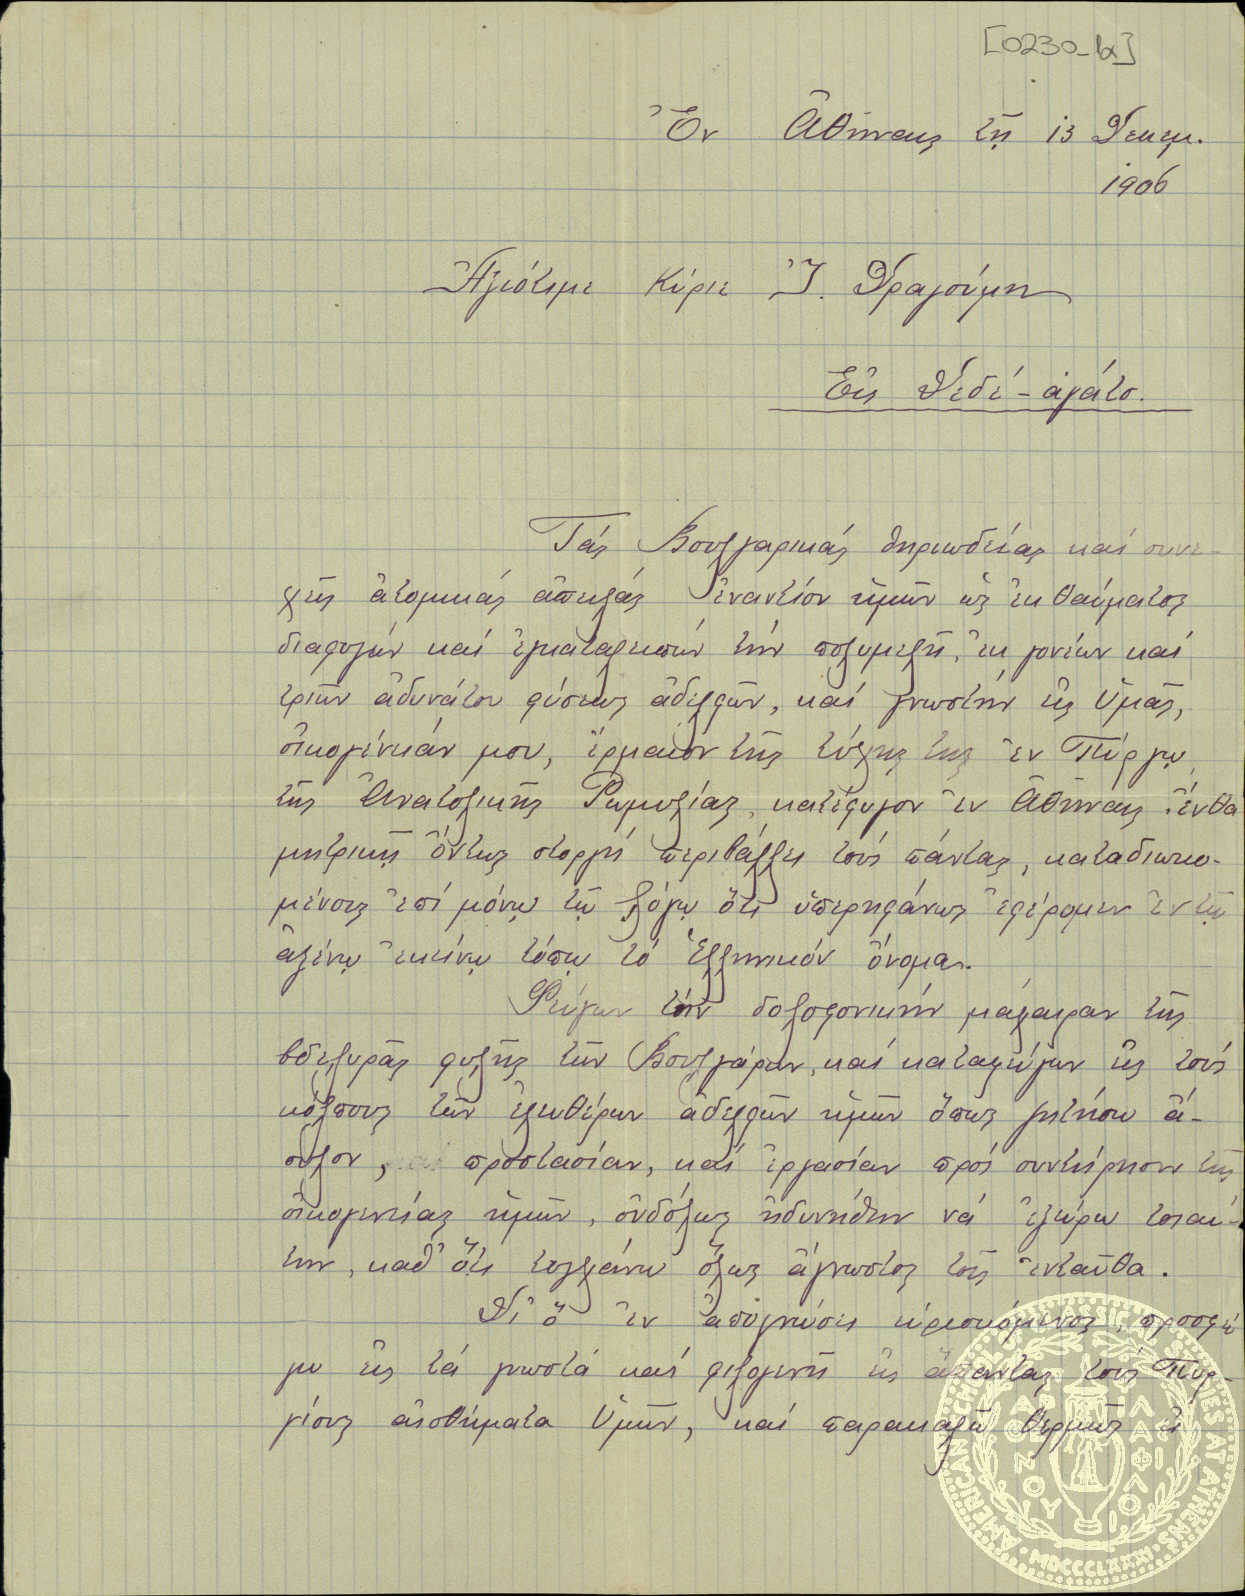 [0230_1α]
Ἐν Ἀθήναις τῇ 13 Δεκεμ.
1906
Ἀξιότιμε Κύριε Ἰ. Δραγούμη
Εἰς Δεδέ-ἀγάτσ.
Τάς Βουλγαρικάς θηριωδείας καί συνε-
χεῖς ἀτομικάς ἀπειλάς ἐναντίον ἡμῶν ὡς ἐκ θαύματος
διαφυγών καί ἐγκαταλειπών τήν πολυμελῆ, ἐκ γονέων καί
τριῶν ἀδυνάτου φύσεως ἀδελφῶν, καί γνωστήν εἰς Ὑμᾶς,
οἰκογένειάν μου, ἕρμαιον τῆς τύχης της ἐν Πύργῳ
τῆς Ἀνατολικῆς Ρωμυλίας, κατέφυγον ἐν Ἀθήναις ἔνθα
μητρικῇ ὄντως στοργῇ περιβάλλει τούς πάντας, καταδιωκο-
μένους ἐπί μόνῳ τῷ λόγῳ ὅτι ὑπερηφάνως ἐφέρομεν ἐν τῷ
ἀξένῳ ἐκείνῳ τόπῳ τό Ἑλληνικόν ὄνομα.
Φεύγων τήν δολοφονικήν μάχαιραν τῆς
βδελυρᾶς φυλῆς τῶν Βουλγάρων, καί καταφεύγων εἰς τούς
κόλπους τῶν ἐλευθέρων ἀδελφῶν ἡμῶν ὅπως ζητήσω ἄ-
συλον, καί προστασίαν, καί ἐργασίαν πρός συντήρησιν τῆς
οἰκογενείας ἡμῶν, οὐδόλως ἠδυνήθην νά ἐξεύρω τοιαύ-
την, καθ' ὅτι τυγχάνω ὅλως ἄγνωστος τοῖς ἐνταῦθα.
Δι' ὅ ἐν ἀπογνώσει εὑρισκόμενος, προσφεύ
γω εἰς τά γνωστά καί φιλογενῆ εἰς ἅπαντας τούς Πυρ-
γίους αἰσθήματα Ὑμῶν, καί παρακαλῶ θερμῶς
AMERICAN SCHOOL OF CLASSICAL STUDIES AT ATHENS
MDCCCLXXXI
ΠΑΝΑΘΗΝΑΙΟΙΣ ΦΙΛΟΝ